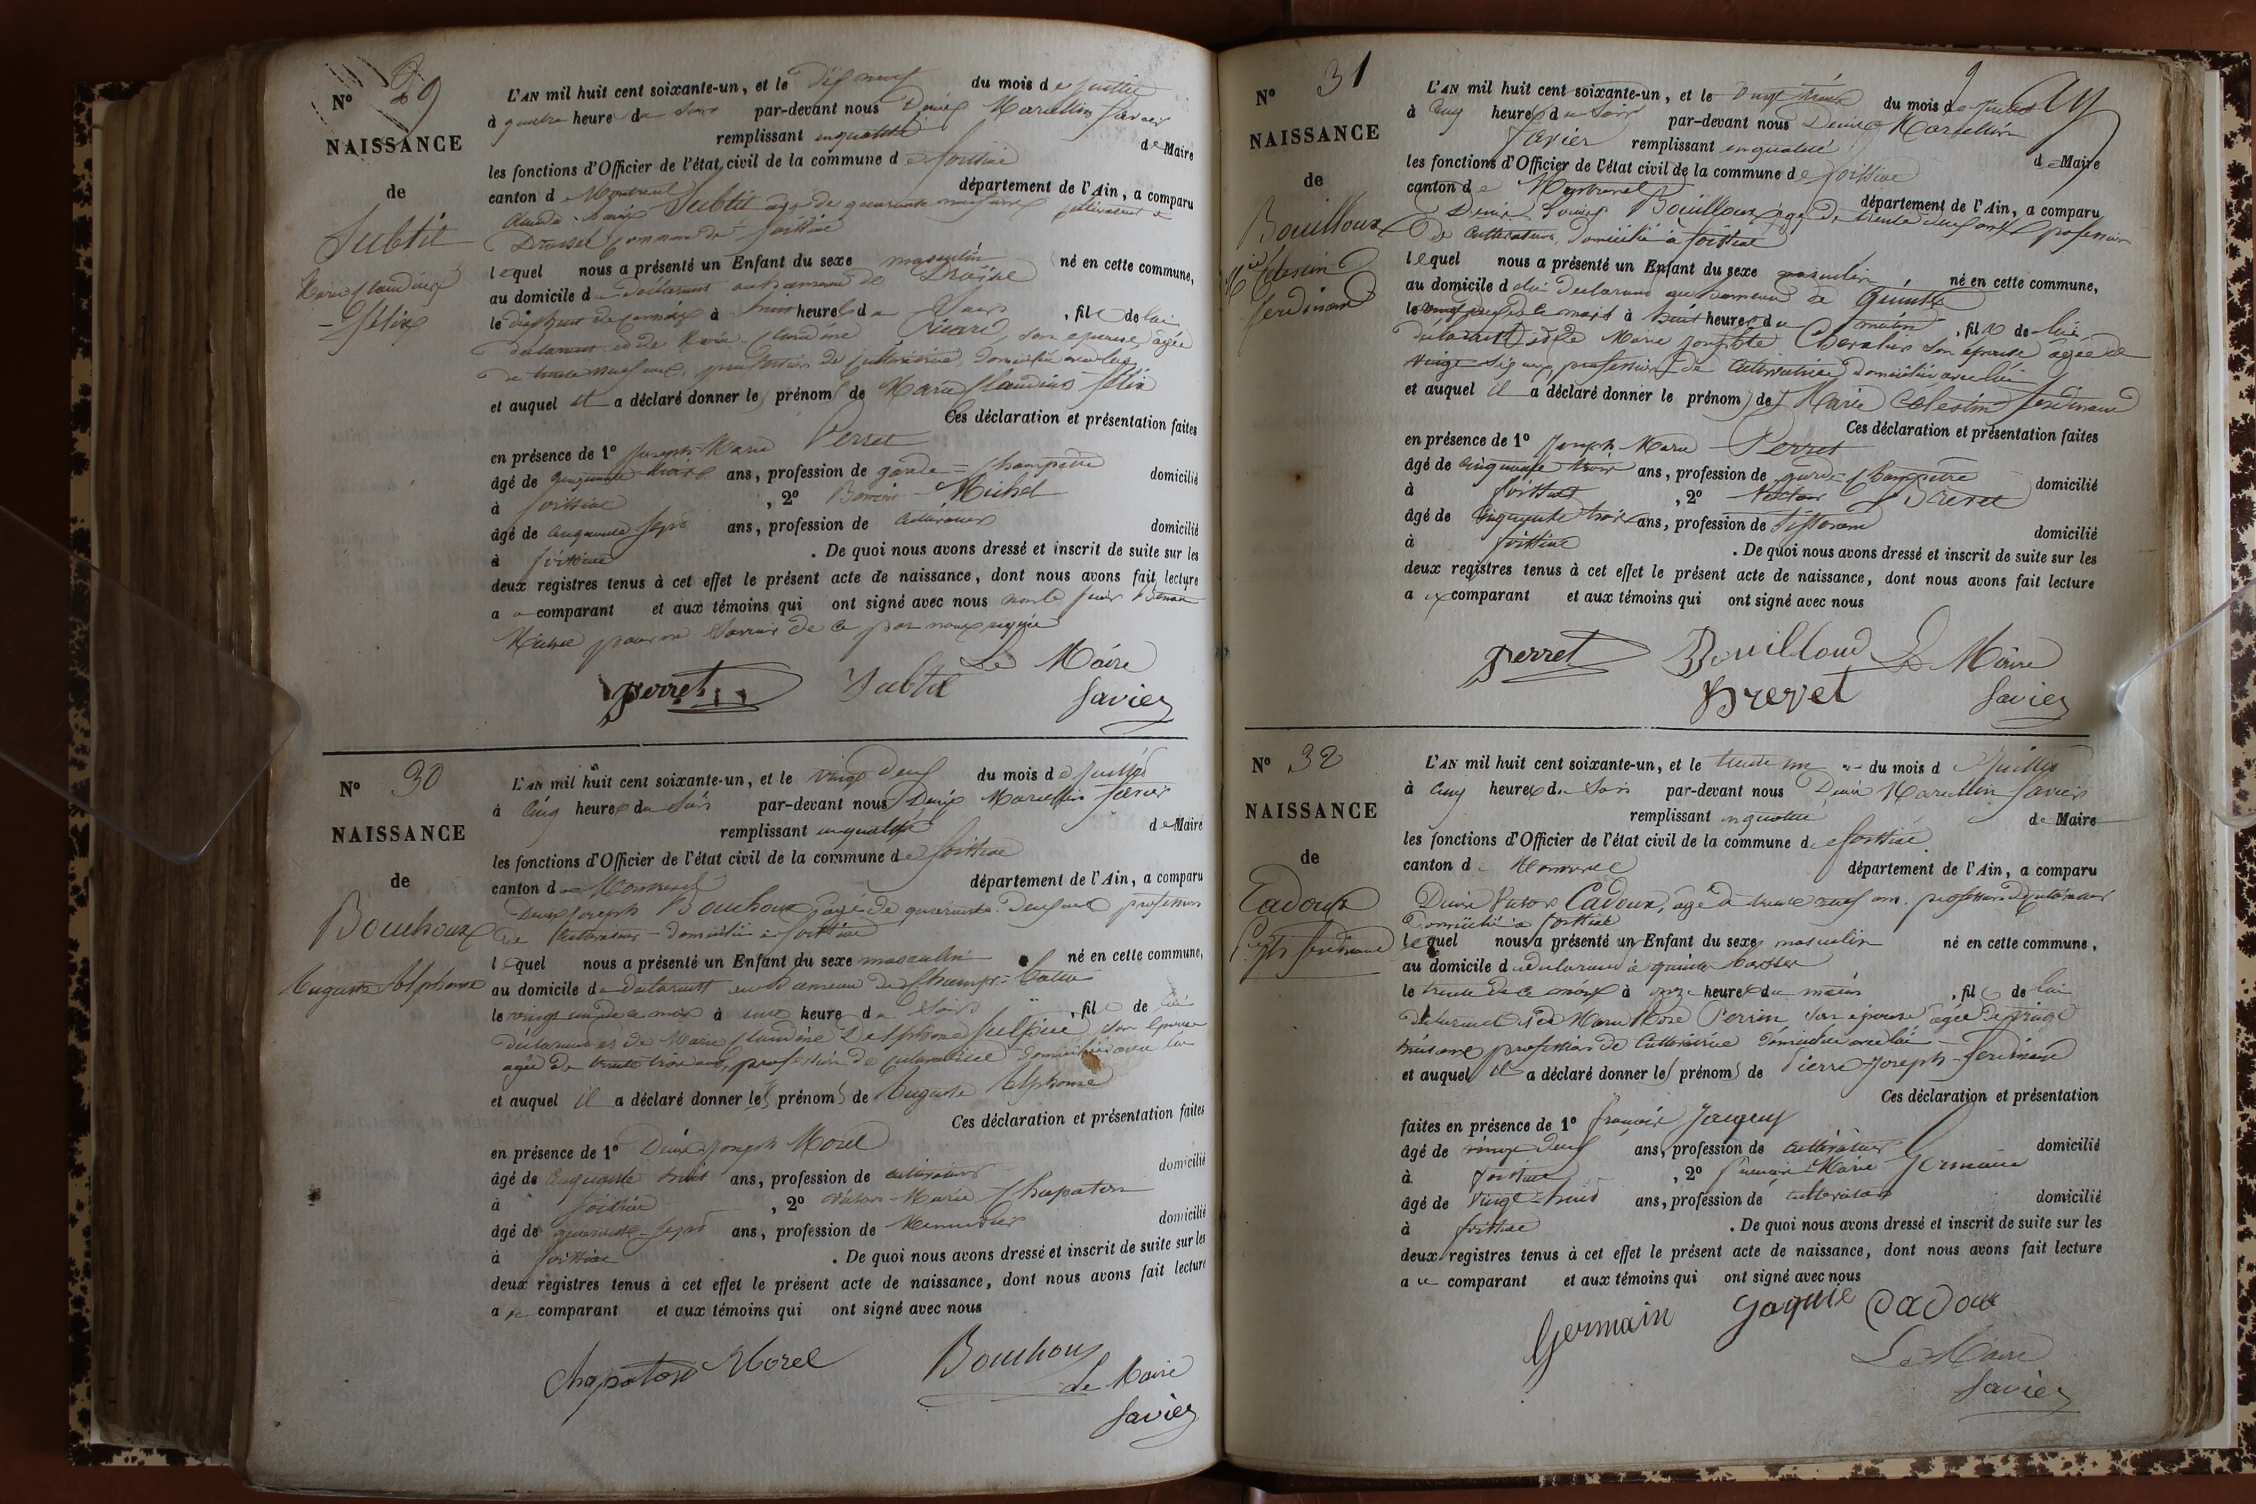 N° 29
NAISSANCE
de
Subtil
Marie Claudius
Félix
L'AN mil huit cent soixante-un, et le dix neuf du mois de juillet
à quatre heure du soir par-devant nous Denis Marcellin Savier
remplissant en qualité de Maire
les fonctions d'Officier de l'état civil de la commune de
canton de département de l'Ain, a comparu
Subtil âgé de quarante neuf ans
commune de
lequel nous a présenté un Enfant du sexe masculin né en cette commune,
au domicile du déclarant au hameau de
le dix huit de ce mois à heure du soir, fils de lui
déclarant et de Marie Claudine son épouse, âgée
de trente neuf ans, profession de cultivatrice, domiciliée avec lui
et auquel il a déclaré donner les prénoms de Marie Claudius Félix
Ces déclaration et présentation faites
en présence de 1° Joseph Marie Perret
âgé de cinquante trois ans, profession de garde-champêtre domicilié
à , 2° Michel
âgé de cinquante sept ans, profession de cultivateur domicilié
à . De quoi nous avons dressé et inscrit de suite sur les
deux registres tenus à cet effet le présent acte de naissance, dont nous avons fait lecture
au comparant et aux témoins qui ont signé avec nous
Michel pour ne savoir de ce par nous requis
Perret Subtil Le Maire
Savier
N° 30
NAISSANCE
de
Bouchoux
Auguste Alphonse
L'AN mil huit cent soixante-un, et le vingt deux du mois de juillet
à cinq heures du soir par-devant nous Denis Marcellin Savier
remplissant en qualité de Maire
les fonctions d'Officier de l'état civil de la commune de
canton de département de l'Ain, a comparu
Denis Joseph Bouchoux âgé de quarante deux ans profession
de cultivateur domicilié à
lequel nous a présenté un Enfant du sexe masculin né en cette commune,
au domicile du déclarant au hameau de
le vingt un de ce mois à une heure du soir, fils de lui
déclarant et de Marie Claudine Delphine Sulpice son épouse
âgée de trente trois ans, profession de cultivatrice domiciliée avec lui
et auquel il a déclaré donner les prénoms de Auguste Alphonse
Ces déclaration et présentation faites
en présence de 1° Denis Joseph Morel
âgé de cinquante huit ans, profession de cultivateur domicilié
à , 2° Victor Marie Chapaton
âgé de quarante sept ans, profession de Menuisier domicilié
à . De quoi nous avons dressé et inscrit de suite sur les
deux registres tenus à cet effet le présent acte de naissance, dont nous avons fait lecture
au comparant et aux témoins qui ont signé avec nous
Chapaton Morel Bouchoux
Le Maire
Savier
N° 31
NAISSANCE
de
Bouilloux
Mie Célestin
Ferdinand
L'AN mil huit cent soixante-un, et le vingt du mois de juillet
à cinq heures du soir par-devant nous Denis Marcellin
Savier remplissant en qualité de Maire
les fonctions d'Officier de l'état civil de la commune de
canton de département de l'Ain, a comparu
Denis Bouilloux âgé de trente deux ans profession
de cultivateur, domicilié à
lequel nous a présenté un Enfant du sexe masculin né en cette commune,
au domicile de lui déclarant au hameau de
le de ce mois à huit heures du matin, fils de lui
déclarant et de Marie Josephte son épouse âgée de
vingt six ans, profession de cultivatrice domiciliée avec lui
et auquel il a déclaré donner les prénoms de Marie Célestin Ferdinand
Ces déclaration et présentation faites
en présence de 1° Joseph Marie Perret
âgé de cinquante trois ans, profession de garde-champêtre domicilié
à , 2° Prevet
âgé de cinquante trois ans, profession de Tisserand domicilié
à . De quoi nous avons dressé et inscrit de suite sur les
deux registres tenus à cet effet le présent acte de naissance, dont nous avons fait lecture
au comparant et aux témoins qui ont signé avec nous
Perret Bouilloud Le Maire
Prevet Savier
N° 32
NAISSANCE
de
Cadoux
Ferdinand
L'AN mil huit cent soixante-un, et le trente un du mois de juillet
à cinq heures du soir par-devant nous Denis Marcellin Savier
remplissant en qualité de Maire
les fonctions d'Officier de l'état civil de la commune de
canton de département de l'Ain, a comparu
Denis Victor Cadoux, âgé de trente neuf ans, profession de cultivateur
domicilié à
lequel nous a présenté un Enfant du sexe masculin né en cette commune,
au domicile du déclarant à
le trente de ce mois à onze heures du matin, fils de lui
déclarant et de Marie Rose Perrin son épouse âgée de vingt
huit ans profession de cultivatrice domiciliée avec lui
et auquel il a déclaré donner les prénoms de Pierre Joseph Ferdinand
Ces déclaration et présentation
faites en présence de 1° François
âgé de vingt deux ans, profession de cultivateur domicilié
à , 2° Marie Germain
âgé de vingt huit ans, profession de cultivateur domicilié
à . De quoi nous avons dressé et inscrit de suite sur les
deux registres tenus à cet effet le présent acte de naissance, dont nous avons fait lecture
au comparant et aux témoins qui ont signé avec nous
Germain Cadoux
Le Maire
Savier